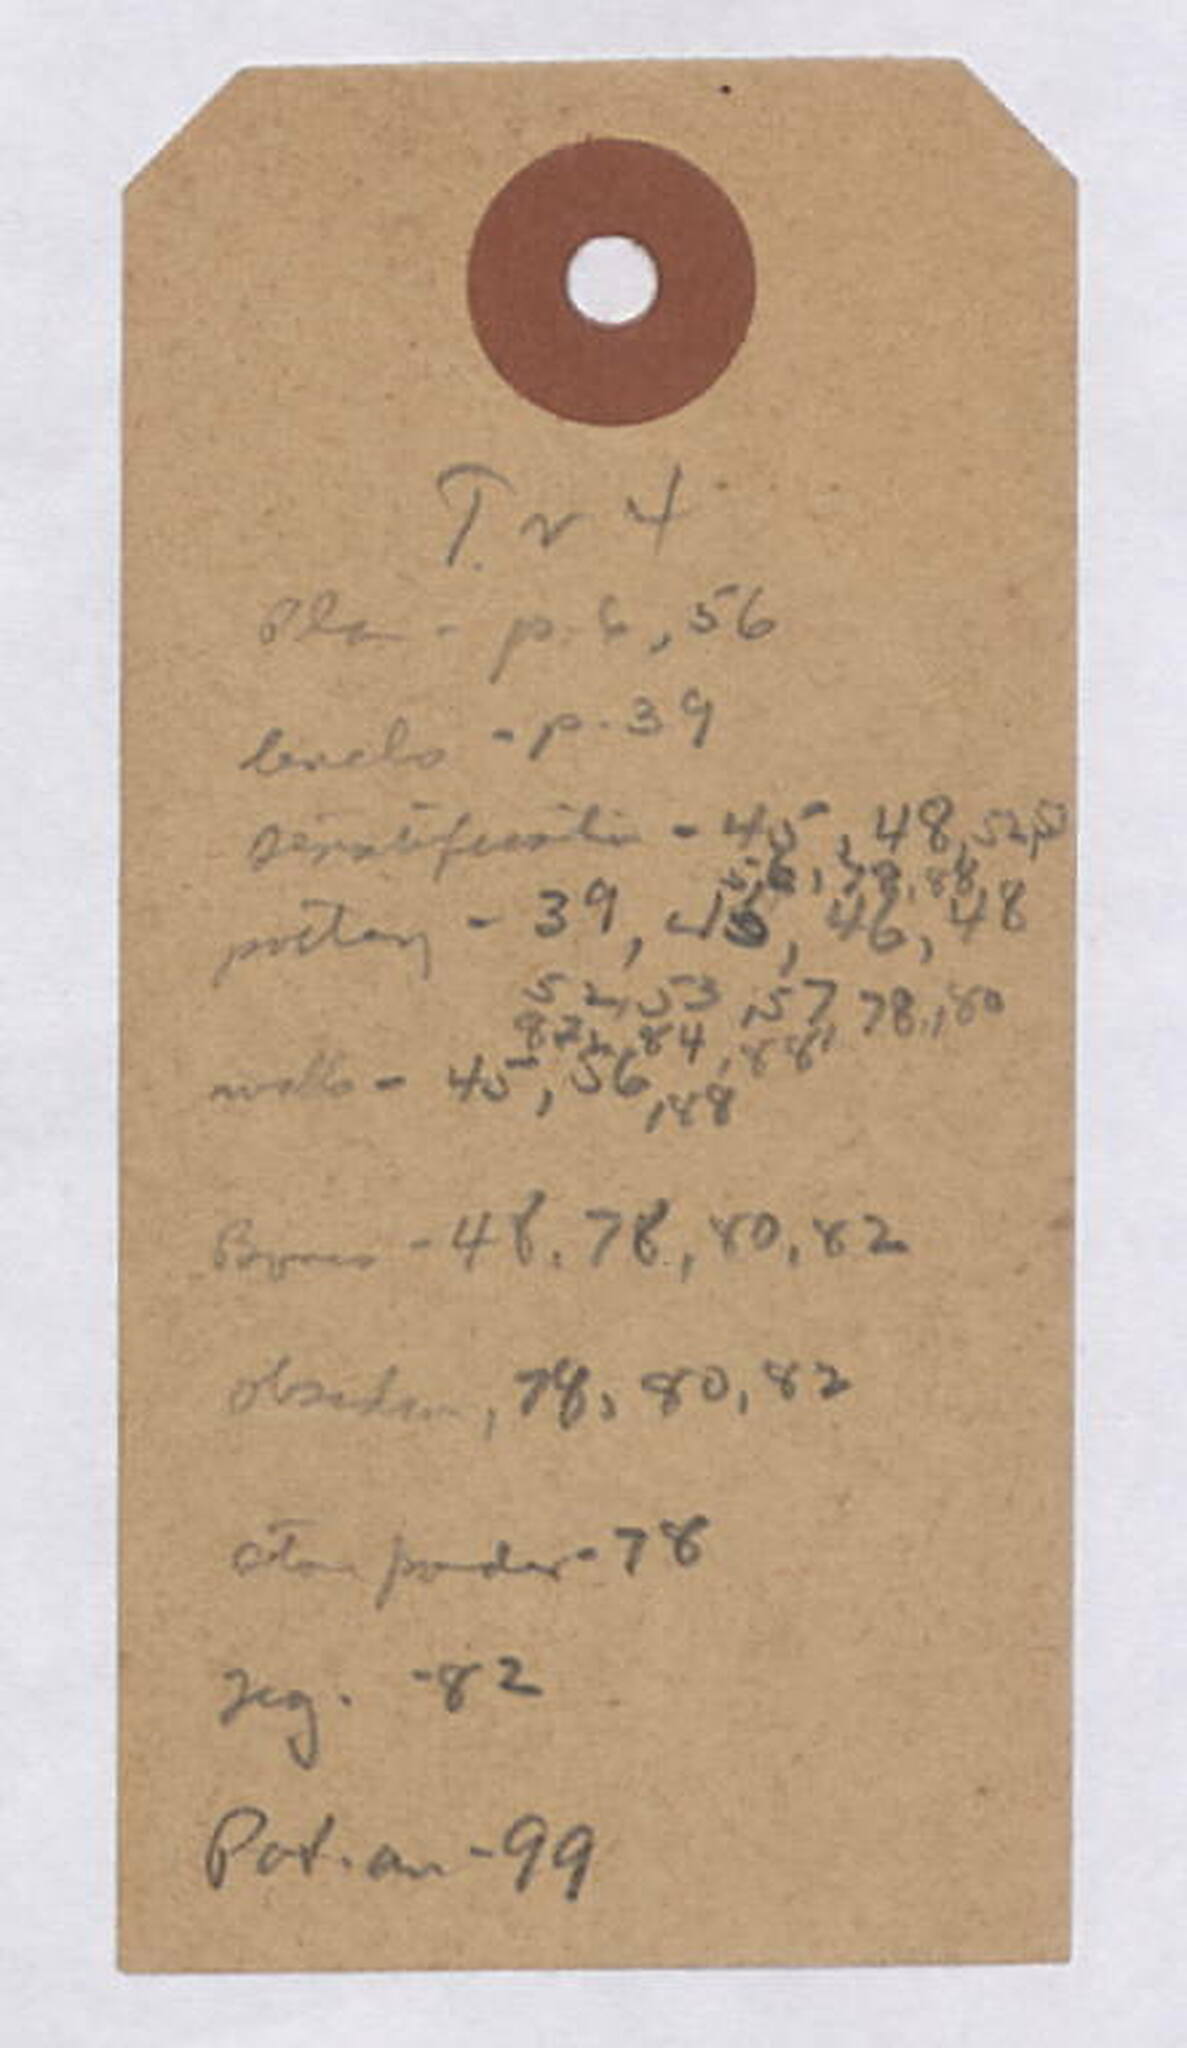 Tr 4
Plan - p. 6, 56
levels - p. 39
stratification - 45, 48, 52,
56, 78, 88,
pottery - 39, 45, 46, 48
52, 53, 57, 78, 80
82, 84, 88
walls - 45, 56, 88
Bones - 48, 78, 80, 82
obsidian, 78, 80, 82
stone powder - 78
Fig. - 82
Pot. an - 99